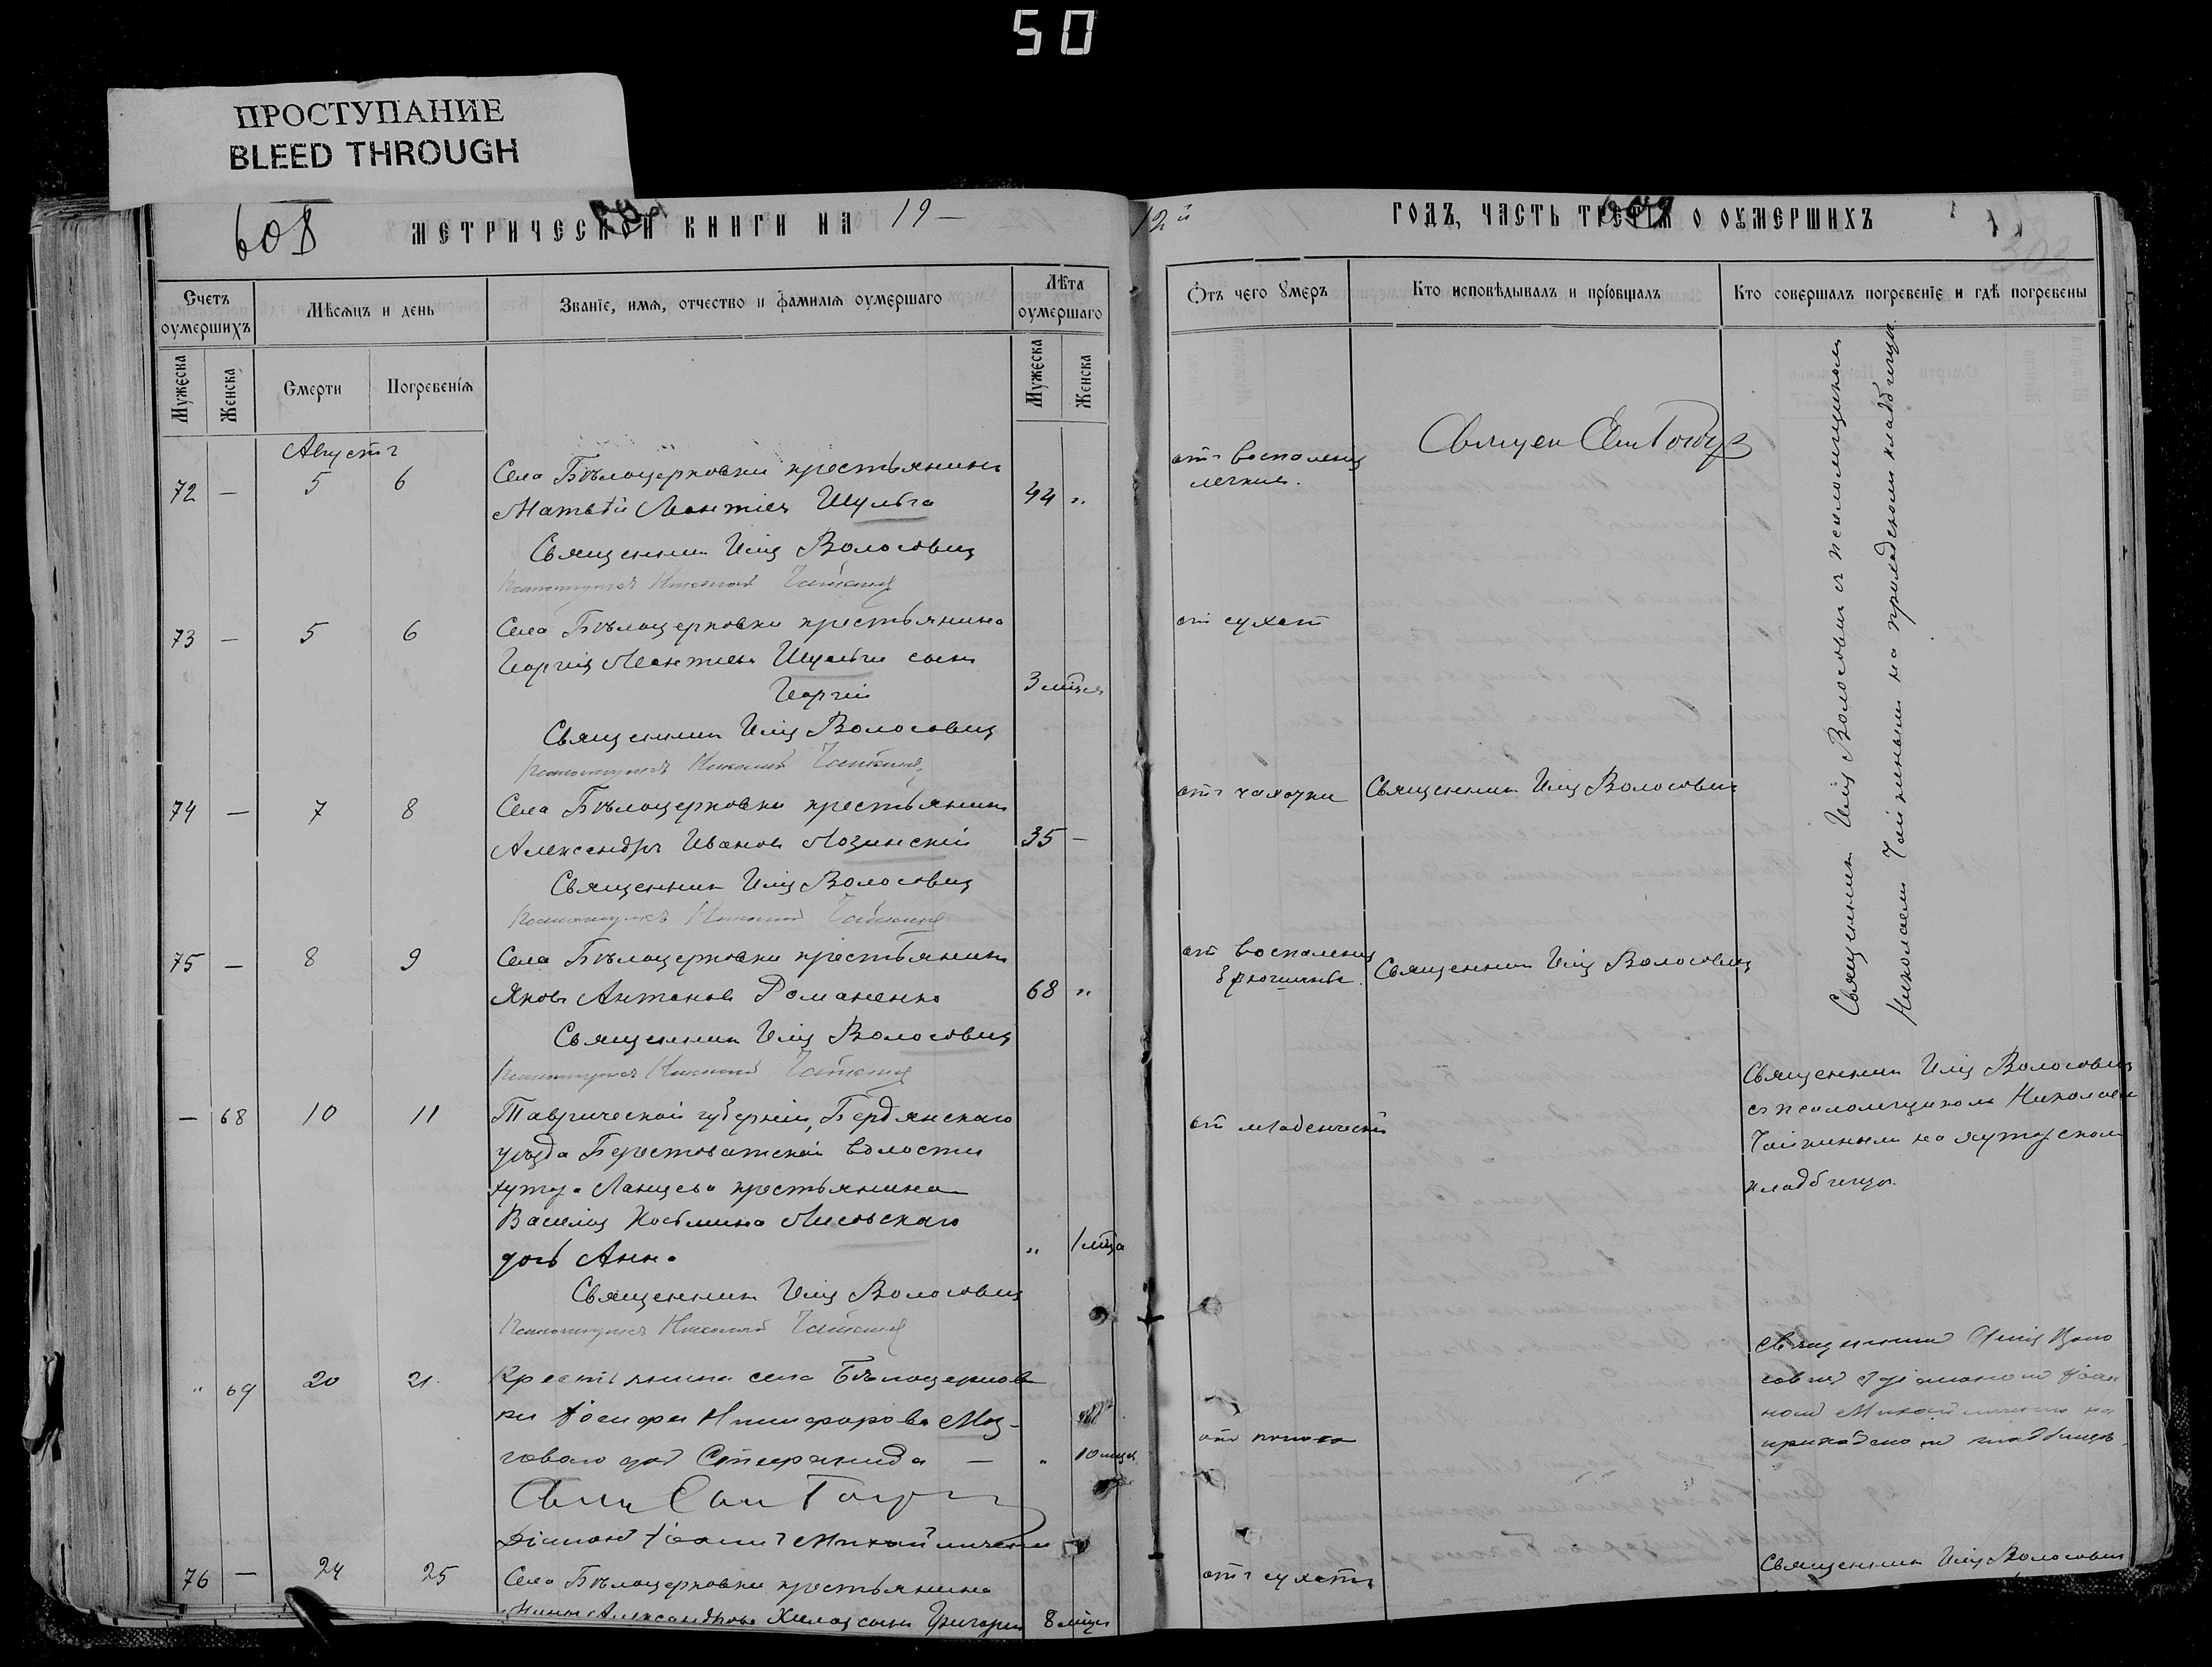 50
ПРОСТУПАНИЕ
BLEED THROUGH
608
МЕТРИЧЕСКОЙ КНИГИ НА 19—
12й ГОДЪ, ЧАСТЬ ТРЕТІЯ О ОУМЕРШИХЪ
303
Счетъ оумершихъ
Мѣсяцъ и день
Званіе, имя, отчество и фамилія оумершаго
Лѣта оумершаго
Отъ чего умеръ
Кто исповѣдывалъ и пріобщалъ
Кто совершалъ погребеніе и гдѣ погребены
Мужеска
Женска
Смерти
Погребенія
Мужеска
Женска
Августъ
72 — 5 6 Села Бѣлоцерковки крестьянинъ 44 „ отъ воспаленія
Матвѣй Леонтіевъ Шульга легкихъ.
Священникъ Илія Волосовичъ
Псаломщикъ Николай Чайкинъ
73 — 5 6 Села Бѣлоцерковки крестьянина отъ сухотъ
Георгія Леонтіева Шульги сынъ
Георгій 3 мѣсяц
Священникъ Илія Волосовичъ
Псаломщикъ Николай Чайкинъ
74 — 7 8 Села Бѣлоцерковки крестьянинъ отъ чахотки Священникъ Илія Волосовичъ
Александръ Ивановъ Лозинскій 35 —
Священникъ Илія Волосовичъ
Псаломщикъ Николай Чайкинъ
75 — 8 9 Села Бѣлоцерковки крестьянинъ отъ воспаленія Священникъ Илія Волосовичъ
Яковъ Антоновъ Романенко 68 „ брюшины.
Священникъ Илія Волосовичъ
Псаломщикъ Николай Чайкинъ
Священникъ Илія Волосовичъ съ псаломщикомъ
Николаемъ Чайкинымъ на приходскомъ кладбищѣ.
— 68 10 11 Таврической губерніи, Бердянскаго отъ младенческ
уѣзда Берестоватской волости
хутора Ланцева крестьянина
Василія Косьмина Лисовскаго
дочь Анна „ 1 мѣца
Священникъ Илія Волосовичъ
Псаломщикъ Николай Чайкинъ
Священникъ Илія Волосовичъ
съ псаломщикомъ Николаемъ
Чайкинымъ на хуторскомъ
кладбищѣ.
„ 69 20 21 Крестьянина села Бѣлоцерков
ки Іосифа Никифорова Моз-
говаго доч Спиранида — „ 10 мѣця отъ поноса
Діаконъ Іоаннъ Михайличенко
Священникъ Илія Воло
совичъ съ діакономъ Іоан
номъ Михайличенко на
приходскомъ кладбищѣ.
76 — 24 25 Села Бѣлоцерковки крестьянина отъ сухотъ Священникъ Илія Волосовичъ
Александрова сынъ Григорій 8 мѣця